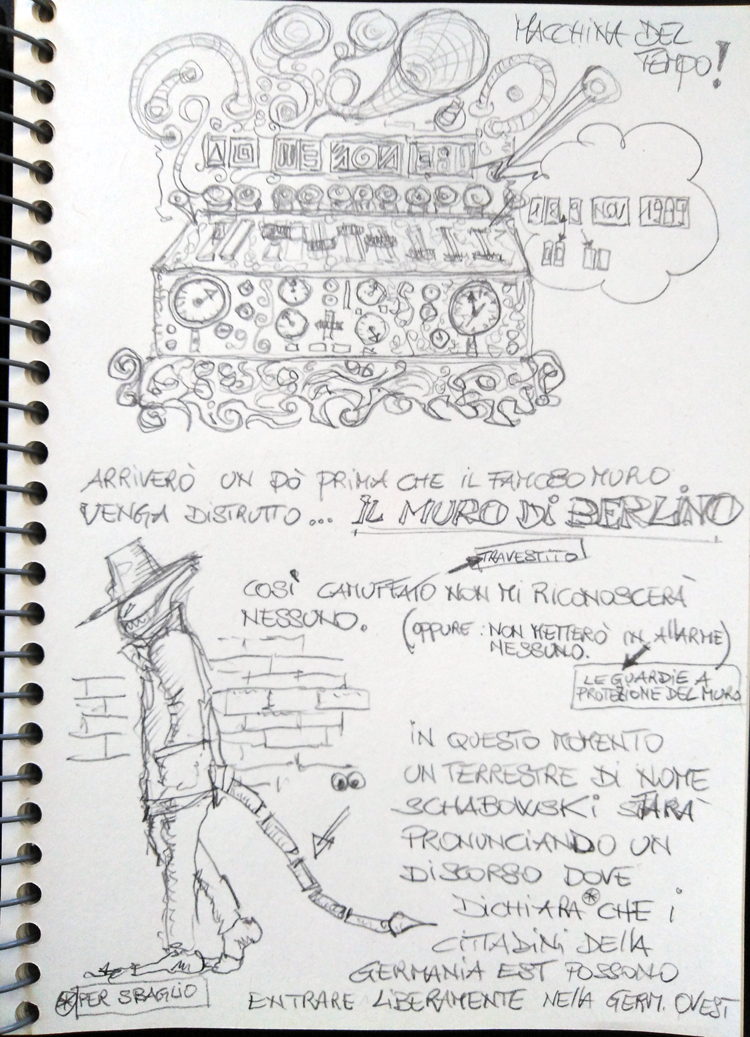 MACCHINA DEL
TEMPO!
18 9 NOV 1989
ARRIVERÒ UN PÒ PRIMA CHE IL FAMOSO MURO
VENGA DISTRUTTO... IL MURO DI BERLINO
TRAVESTITO
COSÌ CAMUFFATO NON MI RICONOSCERÀ
NESSUNO.
(OPPURE: NON METTERÒ IN ALLARME)
NESSUNO.
LE GUARDIE A
PROTEZIONE DEL MURO
IN QUESTO MOMENTO
UN TERRESTRE DI NOME
SCHABOWSKI STARÀ
PRONUNCIANDO UN
DISCORSO DOVE
DICHIARA* CHE I
CITTADINI DELLA
GERMANIA EST POSSONO
*PER SBAGLIO
ENTRARE LIBERAMENTE NELLA GERM. OVEST